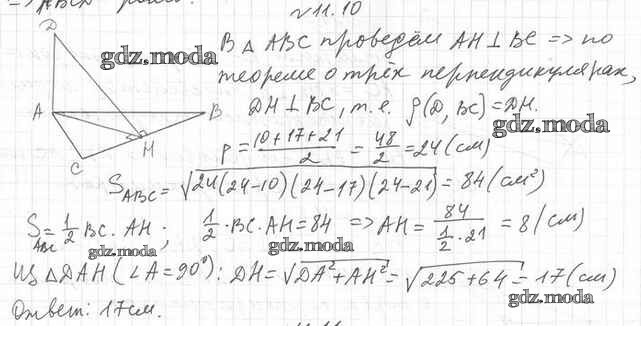 ⇒ ABCD
№11.10
D
gdz.moda
A
B
H
C
В △ ABC проведём AH ⊥ BC ⇒ по
теореме о трёх перпендикулярах,
DH ⊥ BC, т.е. ρ(D, BC) = DH.
gdz.moda
p = (10+17+21)/2 = 48/2 = 24 (см)
S_ABC = √(24(24-10)(24-17)(24-21)) = 84 (см²)
S_ABC = 1/2 BC · AH; 1/2 · BC · AH = 84 ⇒ AH = 84/(1/2 · 21) = 8 (см)
gdz.moda gdz.moda
Из △ DAH (∠A = 90°): DH = √(DA² + AH²) = √(225 + 64) = 17 (см)
gdz.moda
Ответ: 17 см.